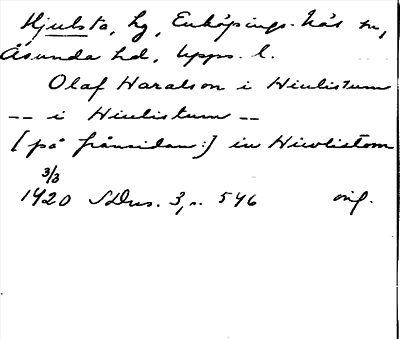 Hjulsta, hg, Enköpings-Näs sn,
Åsunda hd, Upps. l.
Olaf Haralson i Hiulistum
-- i Hiulistum --
[på frånsidan:] in Hiwlistom
3/3
1420 SDns. 3, s. 546 orig.